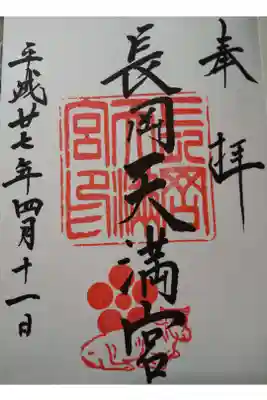 奉拝
長岡天満宮
平成廿七年四月十一日
長岡天満宮印